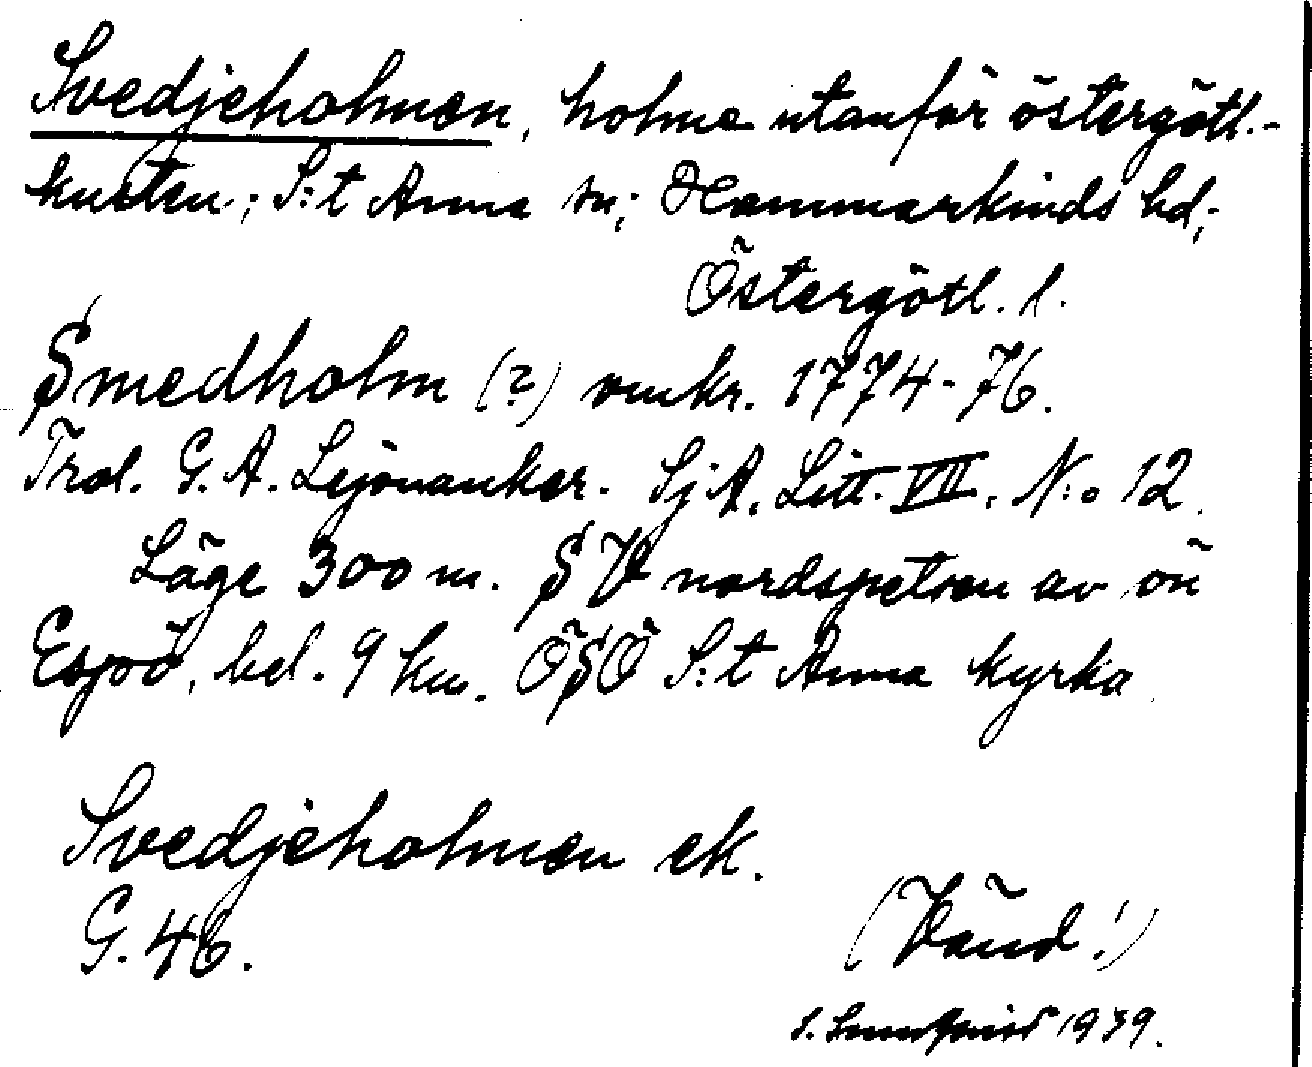 Svedjeholmen, holme utanför östergötl.-
kusten; S:t Anna sn; Hammarkinds hd;
Östergötl. l.
Smedholm (?) omkr. 1774-76.
Trol. G. A. Lejonanker. SjA. Litt. VII. N:o 12.
Läge 300 m. SV nordspetsen av ön
Espö, bel. 9 km. ÖSÖ S:t Anna kyrka.
Svedjeholmen ek.
G. 46.
(Vänd!)
S. Lundqvist 1939.